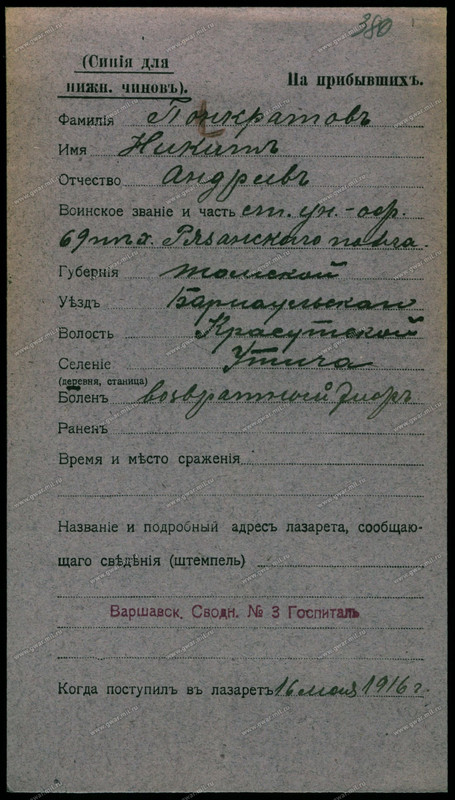 380
(Синія для
нижн. чиновъ).
На прибывшихъ.
Фамилія Понкратовъ
Имя Никита
Отчество Андреевъ
Воинское званіе и часть ст. ун.-оф.
69 пѣх. Рязанского полка
Губернія томской
Уѣздъ Барнаульскаго
Волость
Селеніе
(деревня, станица)
Боленъ возвратный тифъ
Раненъ
Время и мѣсто сраженія
Названіе и подробный адресъ лазарета, сообщаю-
щаго свѣдѣнія (штемпель)
Варшавск. Сводн. № 3 Госпиталь
Когда поступил въ лазаретъ 16 мая 1916 г.